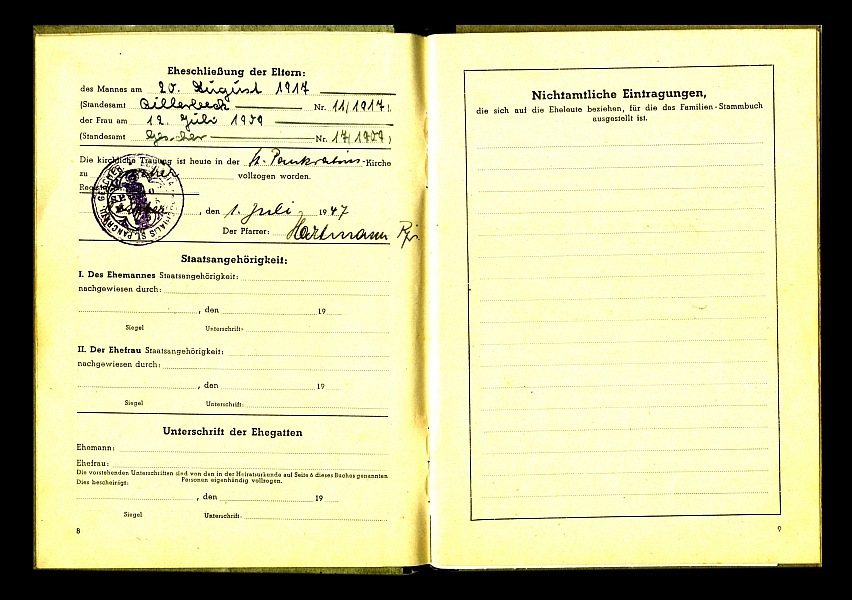 Eheschließung der Eltern:
des Mannes am 20. August 1917
(Standesamt Billerbeck Nr. 11/1917)
der Frau am 12. Juli 1909
(Standesamt Gescher Nr. 17/1909)
Die kirchliche Trauung ist heute in der St. Pankratius-Kirche
zu Gescher vollzogen worden.
, den 1. Juli 1947
Der Pfarrer: Hartmann Pfr
Staatsangehörigkeit:
I. Des Ehemannes Staatsangehörigkeit:
nachgewiesen durch:
, den 19
Siegel Unterschrift:
II. Der Ehefrau Staatsangehörigkeit:
nachgewiesen durch:
, den 19
Siegel Unterschrift:
Unterschrift der Ehegatten
Ehemann:
Ehefrau:
Die vorstehenden Unterschriften sind von den in der Heiratsurkunde auf Seite 6 dieses Buches genannten
Personen eigenhändig vollzogen.
Dies bescheinigt:
, den 19
Siegel Unterschrift:
8
Nichtamtliche Eintragungen,
die sich auf die Eheleute beziehen, für die das Familien-Stammbuch
ausgestellt ist.
9